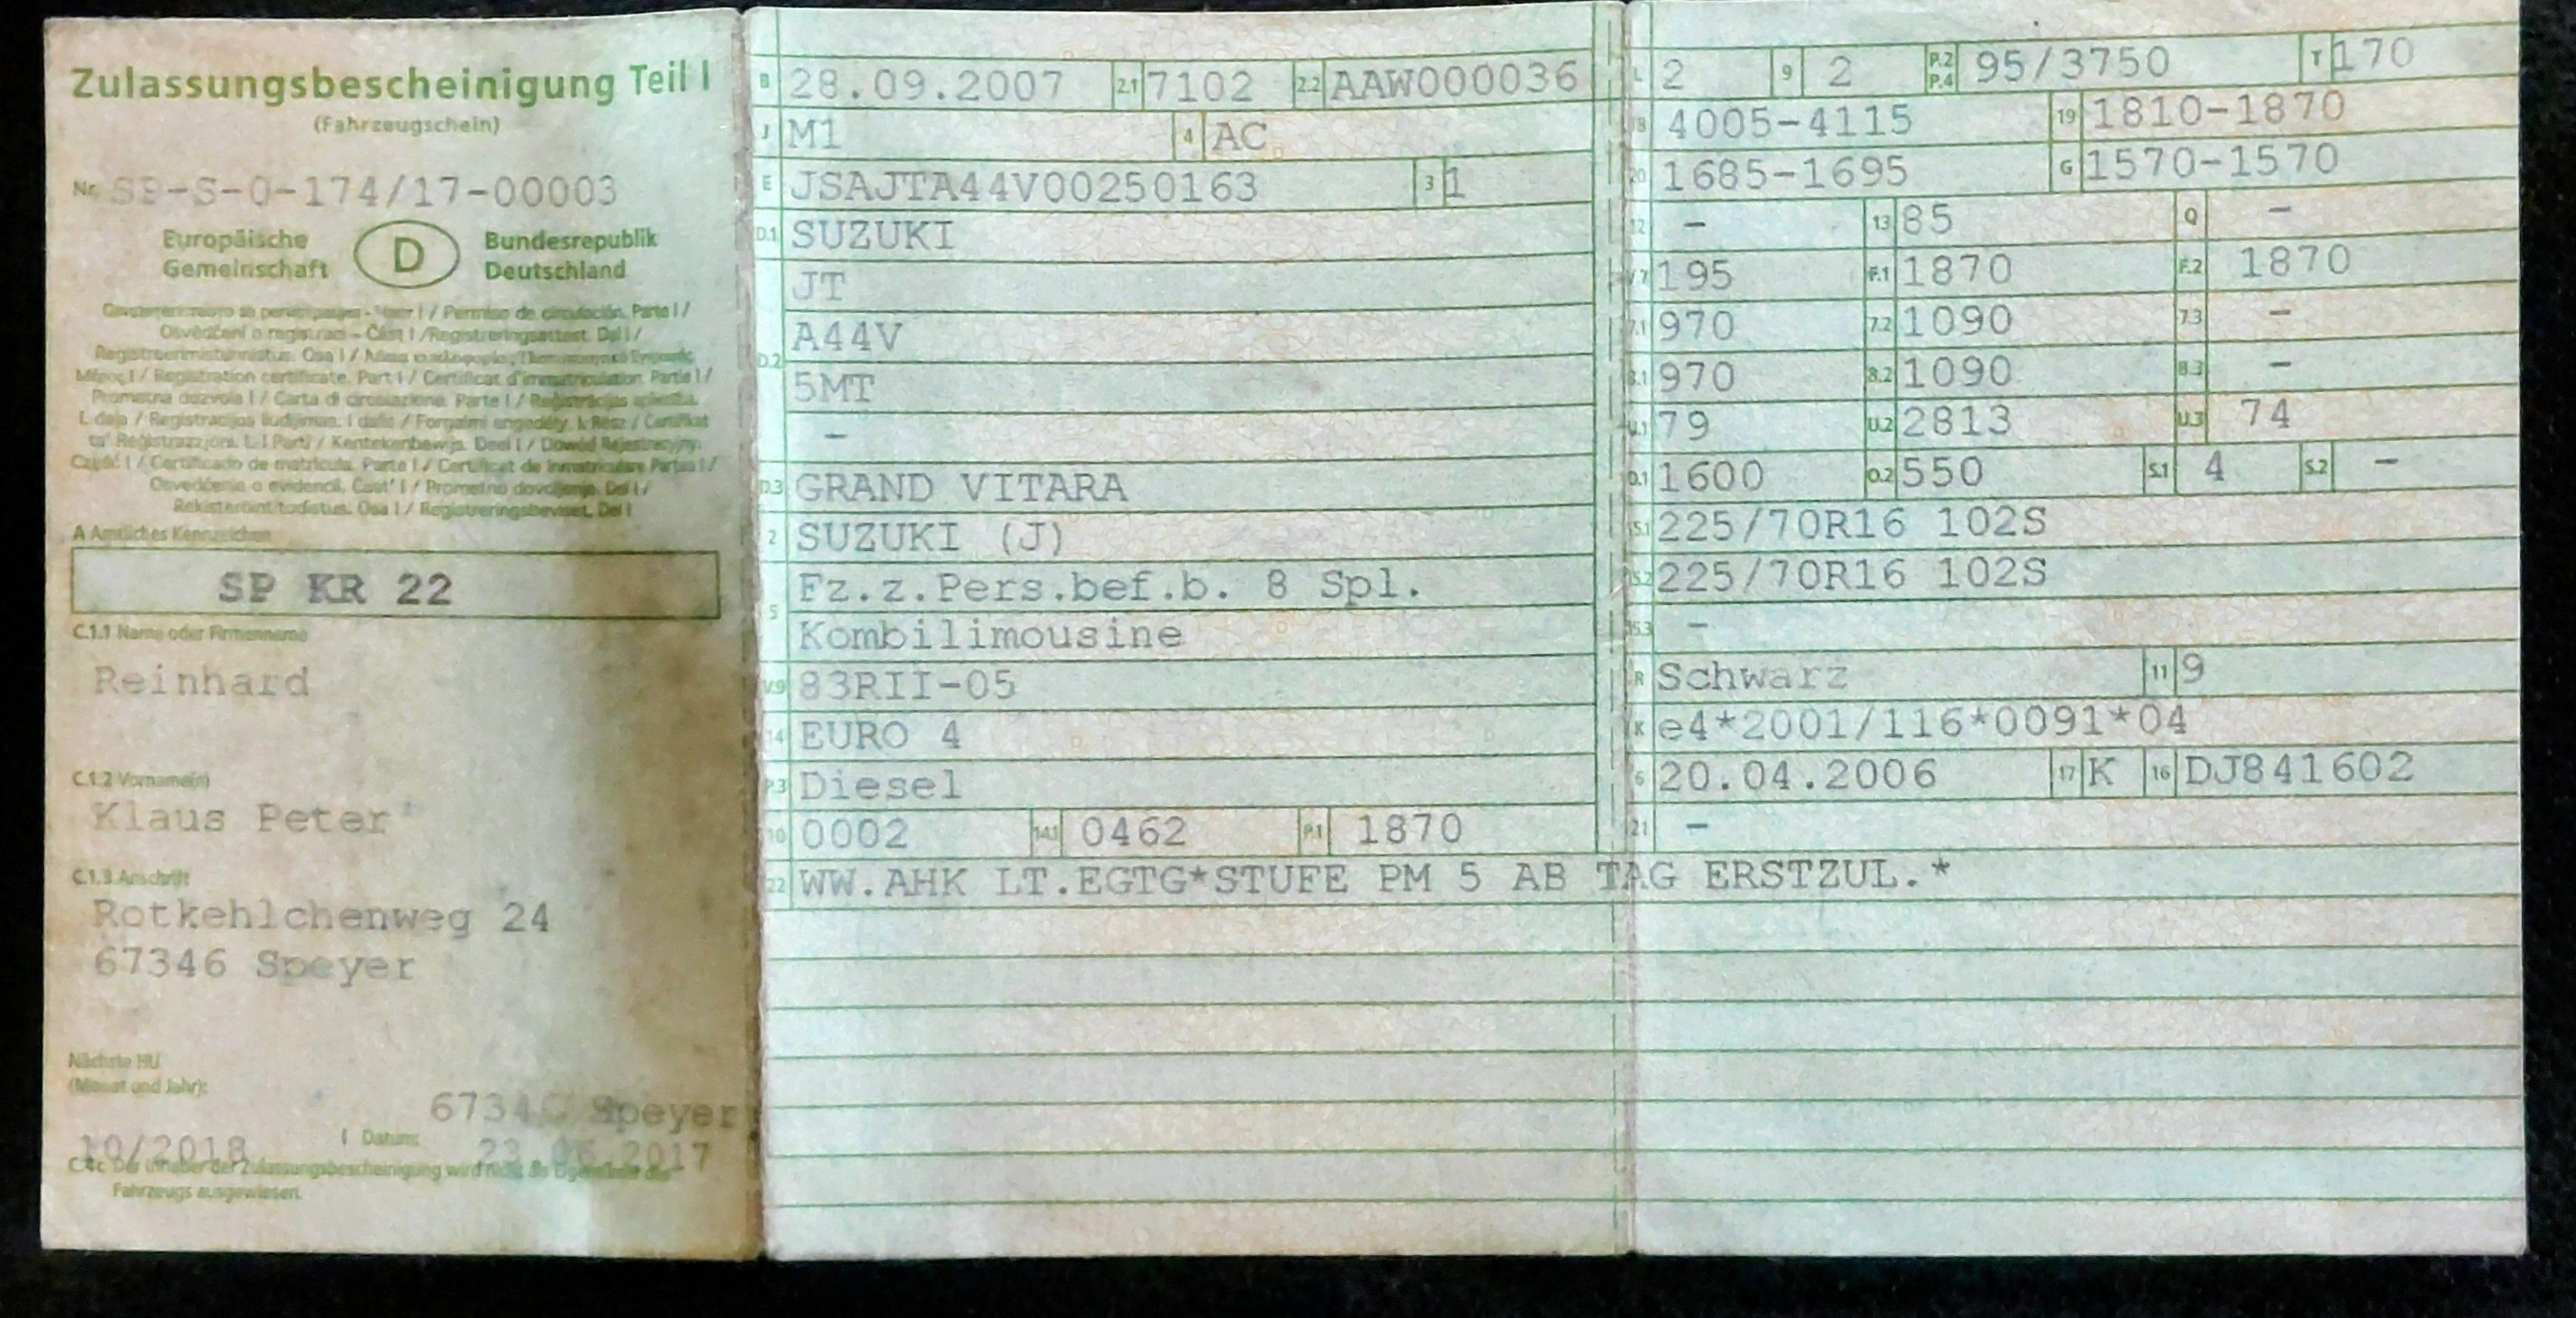 Zulassungsbescheinigung Teil I
(Fahrzeugschein)
Nr. SP-S-0-174/17-00003
Europäische Gemeinschaft
D
Bundesrepublik Deutschland
/ Permiso de circulación. Parte I /
Osvědčení o registraci - Část I / Registreringsattest. Del I /
Registreerimistunnistus. Osa I /
I / Registration certificate. Part I / Certificat d'immatriculation. Partie I /
Prometna dozvola I / Carta di circolazione. Parte I /
L daļa / Registracijos liudijimas. I dalis / Forgalmi engedély. I. Rész / Certifikat
ta' Reġistrazzjoni. L-I Parti / Kentekenbewijs. Deel I / Dowód Rejestracyjny.
Część I / Certificado de matrícula. Parte I / Certificat de înmatriculare. Partea I /
Osvedčenie o evidencii. Časť I / Prometno dovoljenje. Del I /
Rekisteröintitodistus. Osa I / Registreringsbeviset. Del I
A Amtliches Kennzeichen
SP KR 22
C.1.1 Name oder Firmenname
Reinhard
C.1.2 Vorname(n)
Klaus Peter
C.1.3 Anschrift
Rotkehlchenweg 24
67346 Speyer
Nächste HU
(Monat und Jahr):
67346 Speyer
10/2018 Datum: 23.06.2017
C.4c Der Inhaber der Zulassungsbescheinigung wird nicht als Eigentümer des
Fahrzeugs ausgewiesen.
B 28.09.2007 2.1 7102 2.2 AAW000036
J M1 4 AC
E JSAJTA44V00250163 3 1
D.1 SUZUKI
JT
A44V
D.2
5MT
-
D.3 GRAND VITARA
2 SUZUKI (J)
Fz.z.Pers.bef.b. 8 Spl.
5
Kombilimousine
V.9 83RII-05
14 EURO 4
P.3 Diesel
10 0002 14.1 0462 P.1 1870
22 WW.AHK LT.EGTG*STUFE PM 5 AB TAG ERSTZUL.*
L 2 9 2 P.2 P.4 95/3750 T 170
18 4005-4115 19 1810-1870
20 1685-1695 G 1570-1570
12 - 13 85 Q -
V.7 195 F.1 1870 F.2 1870
7.1 970 7.2 1090 7.3 -
8.1 970 8.2 1090 8.3 -
U.1 79 U.2 2813 U.3 74
O.1 1600 O.2 550 S.1 4 S.2 -
15.1 225/70R16 102S
15.2 225/70R16 102S
15.3 -
R Schwarz 11 9
K e4*2001/116*0091*04
6 20.04.2006 17 K 16 DJ841602
21 -